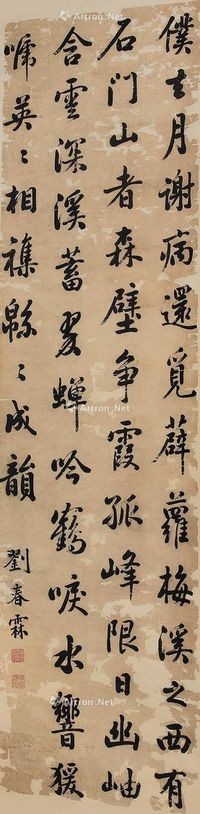 僕去月謝病還覓薜蘿梅溪之西有
石門山者森壁爭霞孤峰限日幽岫
含雲深溪蓄翠蟬吟鶴唳水響猨
啼英〻相襍緜〻成韻
劉春霖
Artron.Net
Artron.Net
Artron.Net
Artron.Net
Artron.Net
Artron.Net